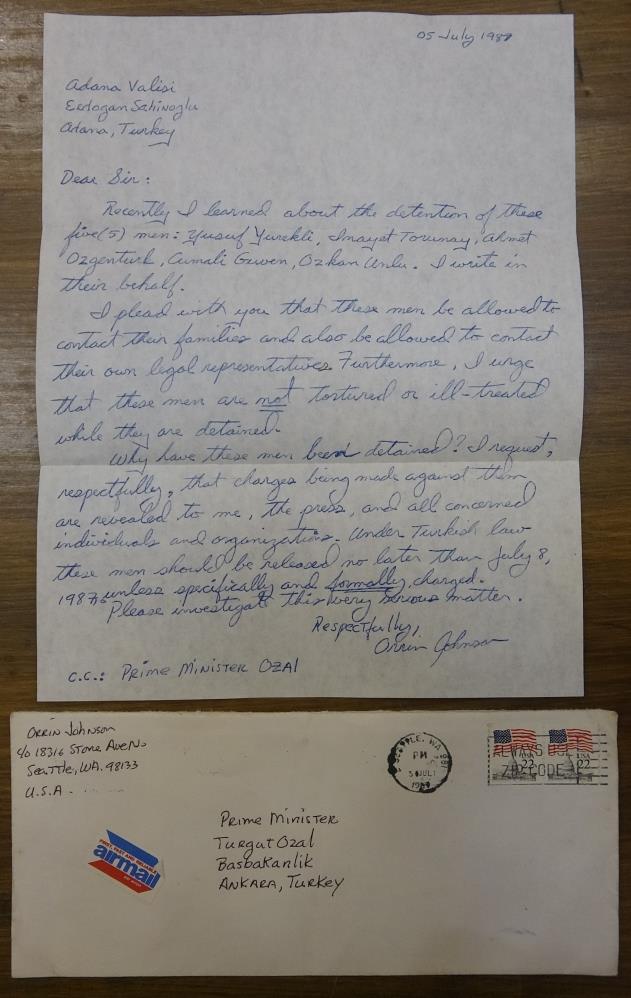 05 July 1987
Adana Valisi
Erdogan Sahinoglu
Adana, Turkey
Dear Sir:
Recently I learned about the detention of these
five (5) men: Yusuf Yurekli, Inayet Torunay, Ahmet
Ozgenturk, Cumali Guven, Ozkan Unlu. I write in
their behalf.
I plead with you that these men be allowed to
contact their families and also be allowed to contact
their own legal representatives. Furthermore, I urge
that these men are not tortured or ill-treated
while they are detained.
Why have these men been detained? I request,
respectfully, that charges being made against them
are revealed to me, the press, and all concerned
individuals and organizations. Under Turkish law
these men should be released no later than July 8,
1987, unless specifically and formally charged.
Please investigate this very serious matter.
Respectfully,
Orrin Johnson
C.C.: PRIME MINISTER OZAL
ORRIN Johnson
c/o 18316 Stone Ave No
Seattle, WA. 98133
U.S.A.
SEATTLE, WA 981
PM
JUL
ALWAYS USE
ZIP CODE
USA 22
22
airmail
Prime Minister
Turgut Ozal
Basbakanlik
ANKARA, Turkey